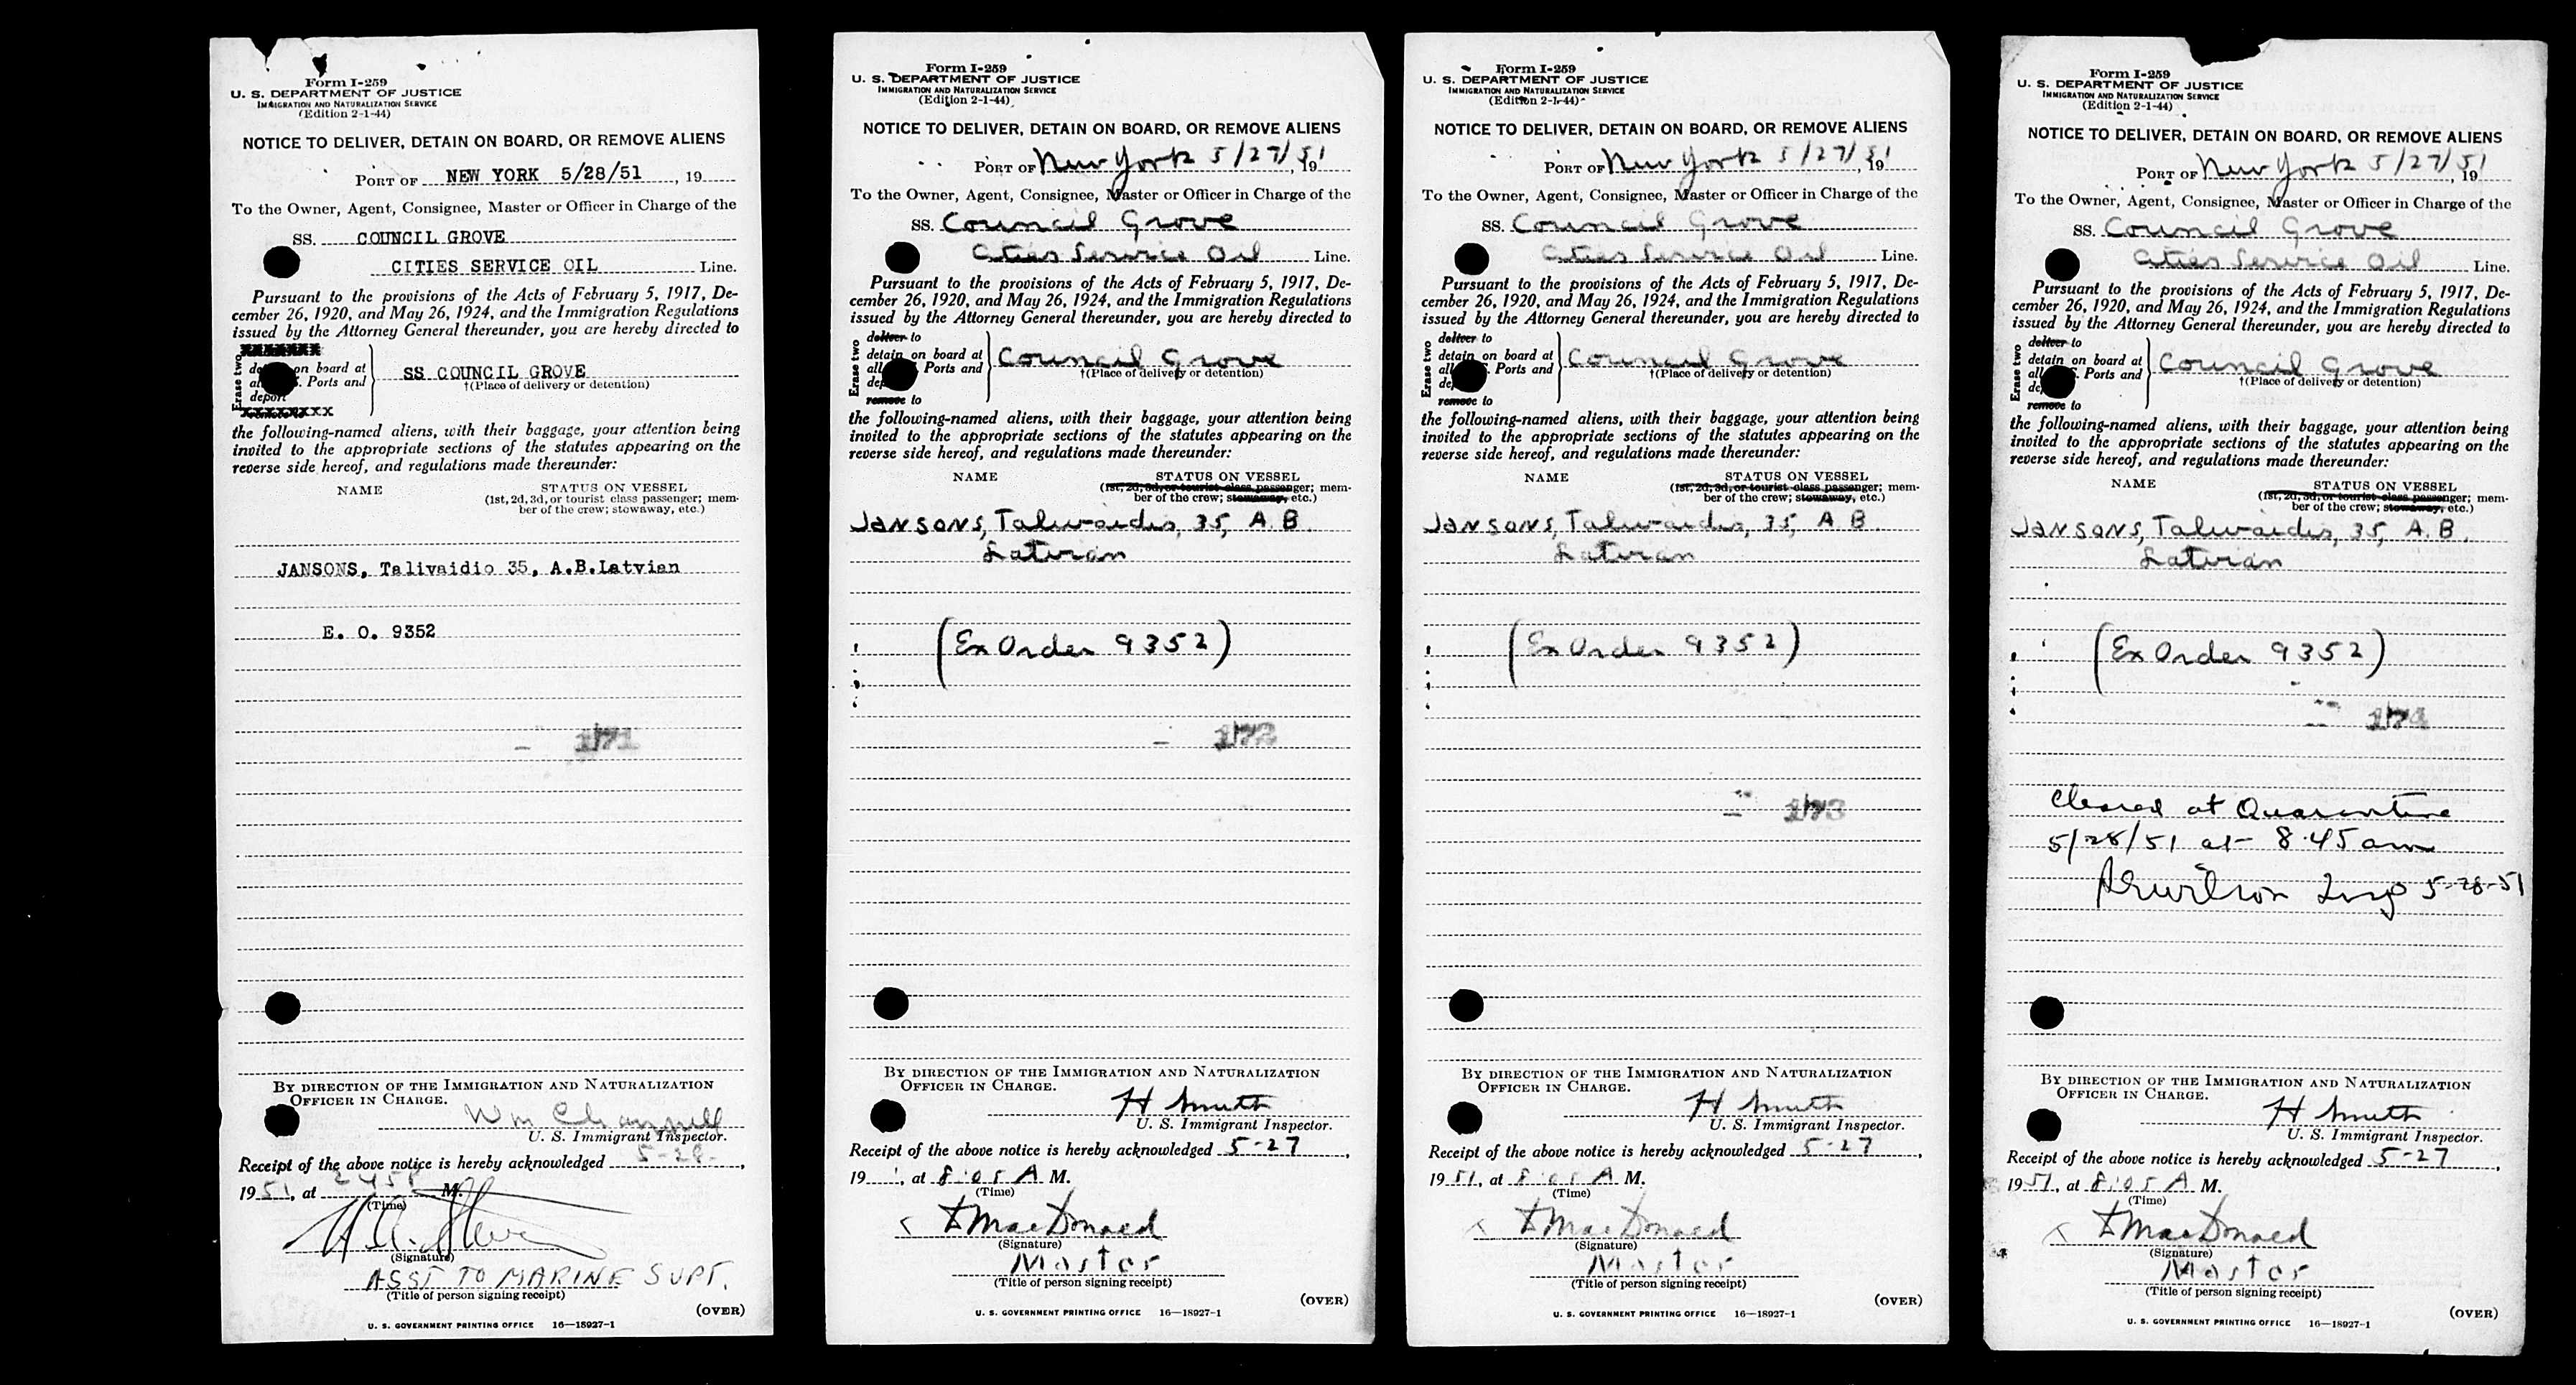 Form I-259
U. S. DEPARTMENT OF JUSTICE
IMMIGRATION AND NATURALIZATION SERVICE
(Edition 2-1-44)
NOTICE TO DELIVER, DETAIN ON BOARD, OR REMOVE ALIENS
PORT OF NEW YORK 5/28/51, 19
To the Owner, Agent, Consignee, Master or Officer in Charge of the
SS. COUNCIL GROVE
CITIES SERVICE OIL Line.
Pursuant to the provisions of the Acts of February 5, 1917, De-
cember 26, 1920, and May 26, 1924, and the Immigration Regulations
issued by the Attorney General thereunder, you are hereby directed to
Erase two
on board at
Ports and
deport
SS COUNCIL GROVE
†(Place of delivery or detention)
the following-named aliens, with their baggage, your attention being
invited to the appropriate sections of the statutes appearing on the
reverse side hereof, and regulations made thereunder:
NAME STATUS ON VESSEL
(1st, 2d, 3d, or tourist class passenger; mem-
ber of the crew; stowaway, etc.)
JANSONS, Talivaidio 35, A.B. Latvian
E. O. 9352
171
BY DIRECTION OF THE IMMIGRATION AND NATURALIZATION
OFFICER IN CHARGE.
Wm
U. S. Immigrant Inspector.
Receipt of the above notice is hereby acknowledged 5-28-,
1951, at M.
(Time)
(Signature)
ASST TO MARINE SUPT.
(Title of person signing receipt)
(OVER)
U. S. GOVERNMENT PRINTING OFFICE 16—18927-1
Form I-259
U. S. DEPARTMENT OF JUSTICE
IMMIGRATION AND NATURALIZATION SERVICE
(Edition 2-1-44)
NOTICE TO DELIVER, DETAIN ON BOARD, OR REMOVE ALIENS
PORT OF New York 5/27/51, 19
To the Owner, Agent, Consignee, Master or Officer in Charge of the
SS. Council Grove
Cities Service Oil Line.
Pursuant to the provisions of the Acts of February 5, 1917, De-
cember 26, 1920, and May 26, 1924, and the Immigration Regulations
issued by the Attorney General thereunder, you are hereby directed to
Erase two
deliver to
detain on board at
all Ports and
remove to
Council Grove
†(Place of delivery or detention)
the following-named aliens, with their baggage, your attention being
invited to the appropriate sections of the statutes appearing on the
reverse side hereof, and regulations made thereunder:
NAME STATUS ON VESSEL
(1st, 2d, 3d, or tourist class passenger; mem-
ber of the crew; stowaway, etc.)
JANSONS, Talivaidis, 35, A.B.
Latvian
(Ex Order 9352)
172
BY DIRECTION OF THE IMMIGRATION AND NATURALIZATION
OFFICER IN CHARGE.
H Smith
U. S. Immigrant Inspector.
Receipt of the above notice is hereby acknowledged 5-27,
19, at 8:05 A M.
(Time)
MacDonald
(Signature)
Master
(Title of person signing receipt)
(OVER)
U. S. GOVERNMENT PRINTING OFFICE 16—18927-1
Form I-259
U. S. DEPARTMENT OF JUSTICE
IMMIGRATION AND NATURALIZATION SERVICE
(Edition 2-1-44)
NOTICE TO DELIVER, DETAIN ON BOARD, OR REMOVE ALIENS
PORT OF New York 5/27/51, 19
To the Owner, Agent, Consignee, Master or Officer in Charge of the
SS. Council Grove
Cities Service Oil Line.
Pursuant to the provisions of the Acts of February 5, 1917, De-
cember 26, 1920, and May 26, 1924, and the Immigration Regulations
issued by the Attorney General thereunder, you are hereby directed to
Erase two
deliver to
detain on board at
all Ports and
remove to
Council Grove
†(Place of delivery or detention)
the following-named aliens, with their baggage, your attention being
invited to the appropriate sections of the statutes appearing on the
reverse side hereof, and regulations made thereunder:
NAME STATUS ON VESSEL
(1st, 2d, 3d, or tourist class passenger; mem-
ber of the crew; stowaway, etc.)
JANSONS, Talivaidis, 35, A B.
Latvian
(Ex Order 9352)
173
BY DIRECTION OF THE IMMIGRATION AND NATURALIZATION
OFFICER IN CHARGE.
H Smith
U. S. Immigrant Inspector.
Receipt of the above notice is hereby acknowledged 5-27,
1951, at 8:05 A M.
(Time)
MacDonald
(Signature)
Master
(Title of person signing receipt)
(OVER)
U. S. GOVERNMENT PRINTING OFFICE 16—18927-1
Form I-259
U. S. DEPARTMENT OF JUSTICE
IMMIGRATION AND NATURALIZATION SERVICE
(Edition 2-1-44)
NOTICE TO DELIVER, DETAIN ON BOARD, OR REMOVE ALIENS
PORT OF New York 5/27/51, 19
To the Owner, Agent, Consignee, Master or Officer in Charge of the
SS. Council Grove
Cities Service Oil Line.
Pursuant to the provisions of the Acts of February 5, 1917, De-
cember 26, 1920, and May 26, 1924, and the Immigration Regulations
issued by the Attorney General thereunder, you are hereby directed to
Erase two
deliver to
detain on board at
all Ports and
remove to
Council Grove
†(Place of delivery or detention)
the following-named aliens, with their baggage, your attention being
invited to the appropriate sections of the statutes appearing on the
reverse side hereof, and regulations made thereunder:
NAME STATUS ON VESSEL
(1st, 2d, 3d, or tourist class passenger; mem-
ber of the crew; stowaway, etc.)
JANSONS, Talivaidis, 35, A.B.
Latvian
(Ex Order 9352)
174
Cleared at Quarantine
5/28/51 at 8.45 am
Wilson Insp 5-28-51
BY DIRECTION OF THE IMMIGRATION AND NATURALIZATION
OFFICER IN CHARGE.
H Smith
U. S. Immigrant Inspector.
Receipt of the above notice is hereby acknowledged 5-27,
1951, at 8:05 A M.
(Time)
MacDonald
(Signature)
Master
(Title of person signing receipt)
(OVER)
U. S. GOVERNMENT PRINTING OFFICE 16—18927-1